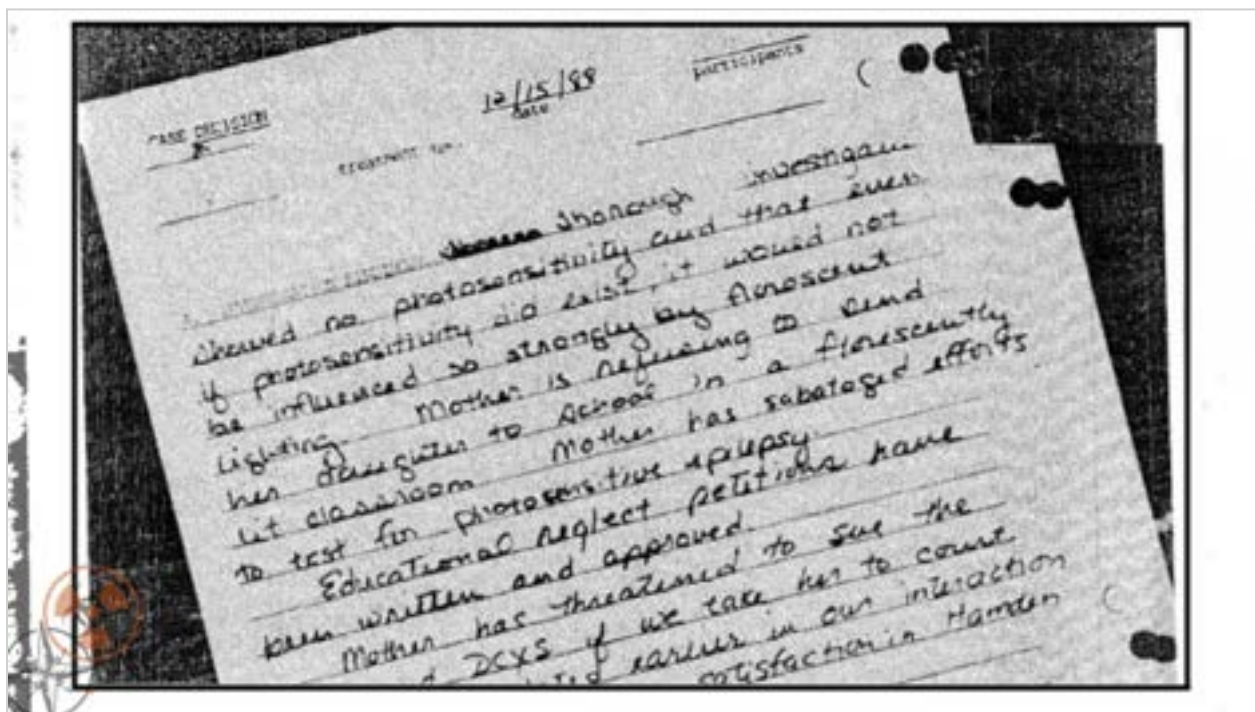 CASE DECISION
12/15/88
date
participants
thorough
showed no photosensitivity and that even
if photosensitivity did exist, it would not
be influenced so strongly by floroscent
lighting. Mother is refusing to send
her daughter to school in a florescently
lit classroom Mother has sabotaged efforts
to test for photosensitive epilepsy.
Educational neglect petitions have
been written and approved.
Mother has threatened to sue the
DCYS if we take her to court
earlier in our interaction
satisfaction in Hamden